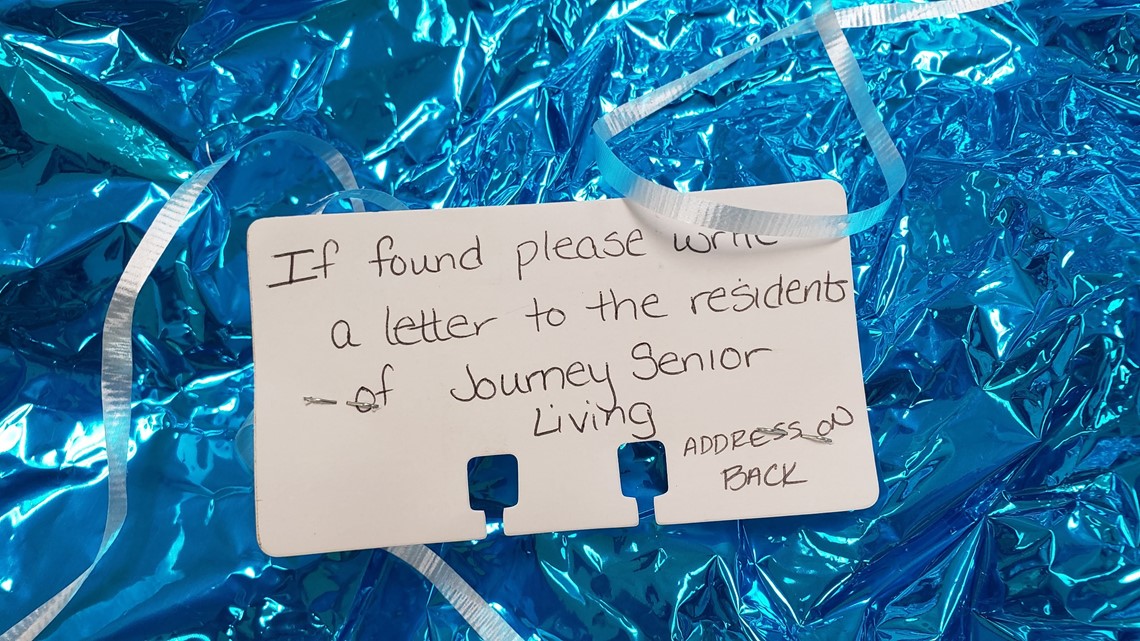 If found please write
a letter to the residents
- of Journey Senior
Living
ADDRESS ON
BACK